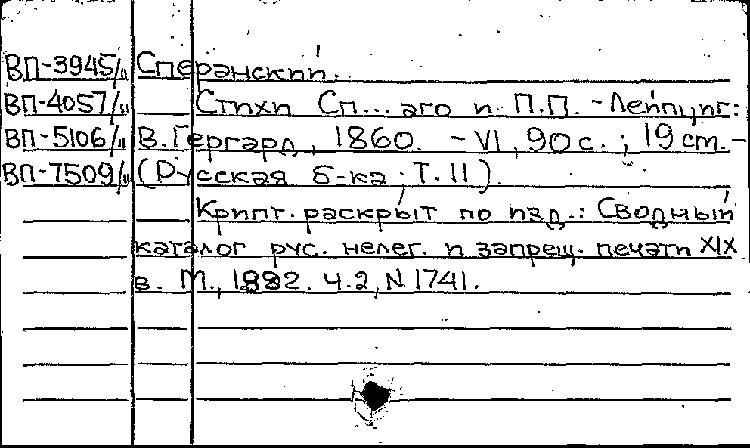 ВП-3945/и Сперанский.
ВП-4057/и Стихи Сп...аго и П.П. - Лейпциг:
ВП-5106/и В. Гергард, 1860. - VI, 90 с.; 19 cm. -
ВП-7509/и (Русская б-ка; Т. II).
Крипт. раскрыт по изд.: Сводный
каталог рус. нелег. и запрещ. печати XIX
в. М., 1982. ч. 2, N 1741.